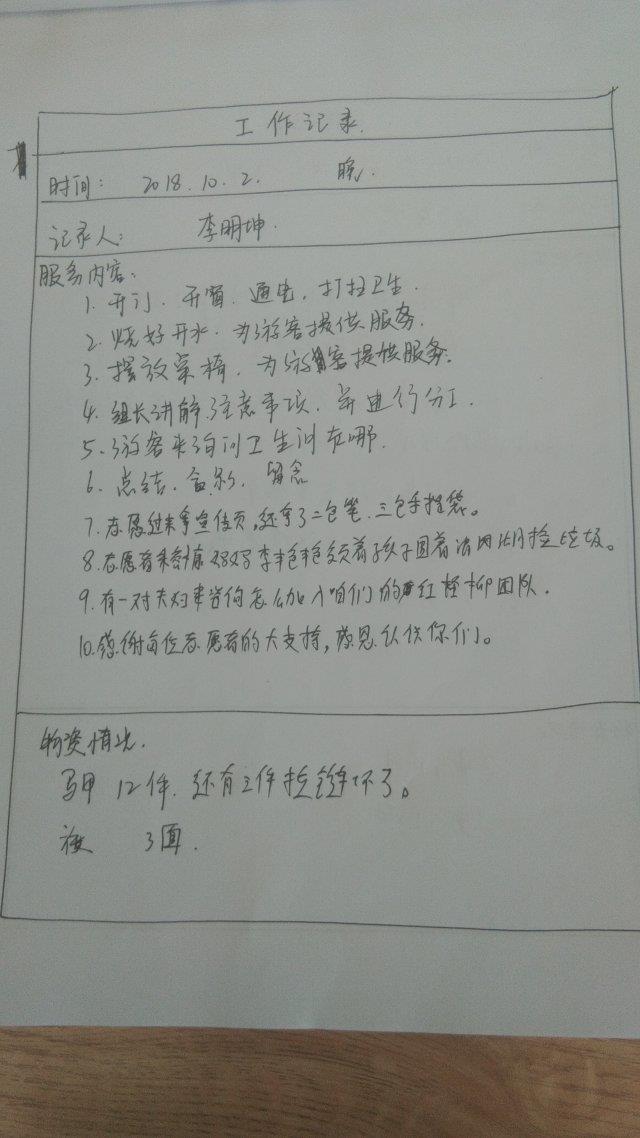 工作记录
时间: 2018.10.2. 晚.
记录人: 李明坤.
服务内容:
1. 开门. 开窗. 通电. 打扫卫生.
2. 烧好开水. 为游客提供服务.
3. 摆放桌椅, 为游客提供服务.
4. 组长讲解注意事项. 并进行分工.
5. 游客来询问卫生间在哪.
6. 总结. 合影. 留念
7. 志愿过来拿宣传页,还拿了二包笔. 三包手提袋。
8. 志愿者 妈妈李艳艳领着孩子围着 捡垃圾。
9. 有一对夫妇来咨询怎么加入咱们的红柽柳团队.
10. 感谢每位志愿者的大支持,感恩 你们。
物资情况.
马甲 12件. 还有三件拉链坏了。
旗 3面.